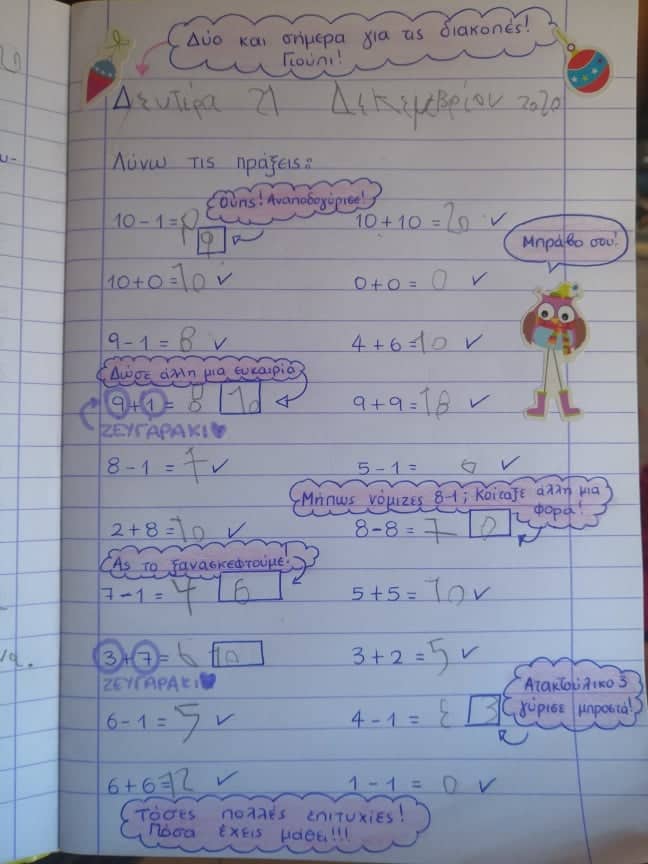 Δύο και σήμερα για τις διακοπές!
Γιούπι!
Δευτέρα 21 Δεκεμβρίου 2020
Λύνω τις πράξεις:
Ούπς! Αναποδογύρισε!
10 - 1 = 9 10 + 10 = 20 ✓
9
Μπράβο σου!
10 + 0 = 10 ✓ 0 + 0 = 0 ✓
9 - 1 = 8 ✓ 4 + 6 = 10 ✓
Δώσε άλλη μια ευκαιρία
9 + 1 = 8 10 9 + 9 = 18 ✓
ΖΕΥΓΑΡΑΚΙ
8 - 1 = 7 ✓ 5 - 1 = ✓
Μήπως νόμιζες 8-1; Κοίταξε άλλη μια
φορά!
2 + 8 = 10 ✓ 8 - 8 = 7 0
Ας το ξανασκεφτούμε!
7 - 1 = 4 6 5 + 5 = 10 ✓
3 + 7 = 6 10 3 + 2 = 5 ✓
ΖΕΥΓΑΡΑΚΙ
Ατακτούλικο 3
γύρισε μπροστά!
6 - 1 = 5 ✓ 4 - 1 = Ɛ 3
6 + 6 = 12 ✓ 1 - 1 = 0 ✓
Τόσες πολλές επιτυχίες!
Πόσα έχεις μάθει!!!